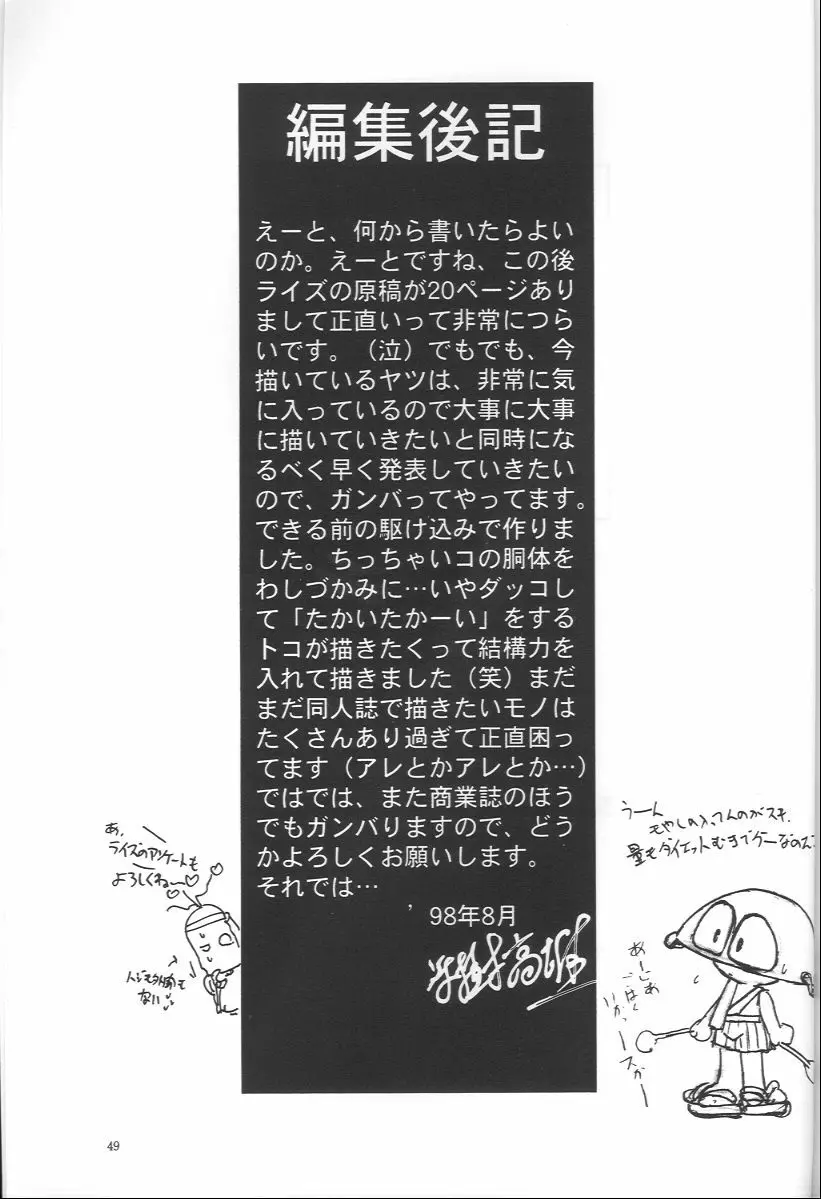 編集後記
えーと、何から書いたらよい
のか。えーとですね、この後
ライズの原稿が20ページあり
まして正直いって非常につら
いです。（泣）でもでも、今
描いているヤツは、非常に気
に入っているので大事に大事
に描いていきたいと同時にな
るべく早く発表していきたい
ので、ガンバってやってます。
できる前の駆け込みで作りま
した。ちっちゃいコの胴体を
わしづかみに…いやダッコし
て「たかいたかーい」をする
トコが描きたくって結構力を
入れて描きました（笑）まだ
まだ同人誌で描きたいモノは
たくさんあり過ぎて正直困っ
てます（アレとかアレとか…）
ではでは、また商業誌のほう
でもガンバりますので、どう
かよろしくお願いします。
それでは…
’98年8月
あ、
ライズのアンケートも
よろしくね〜♡
うーん
量もダイエットむき
49